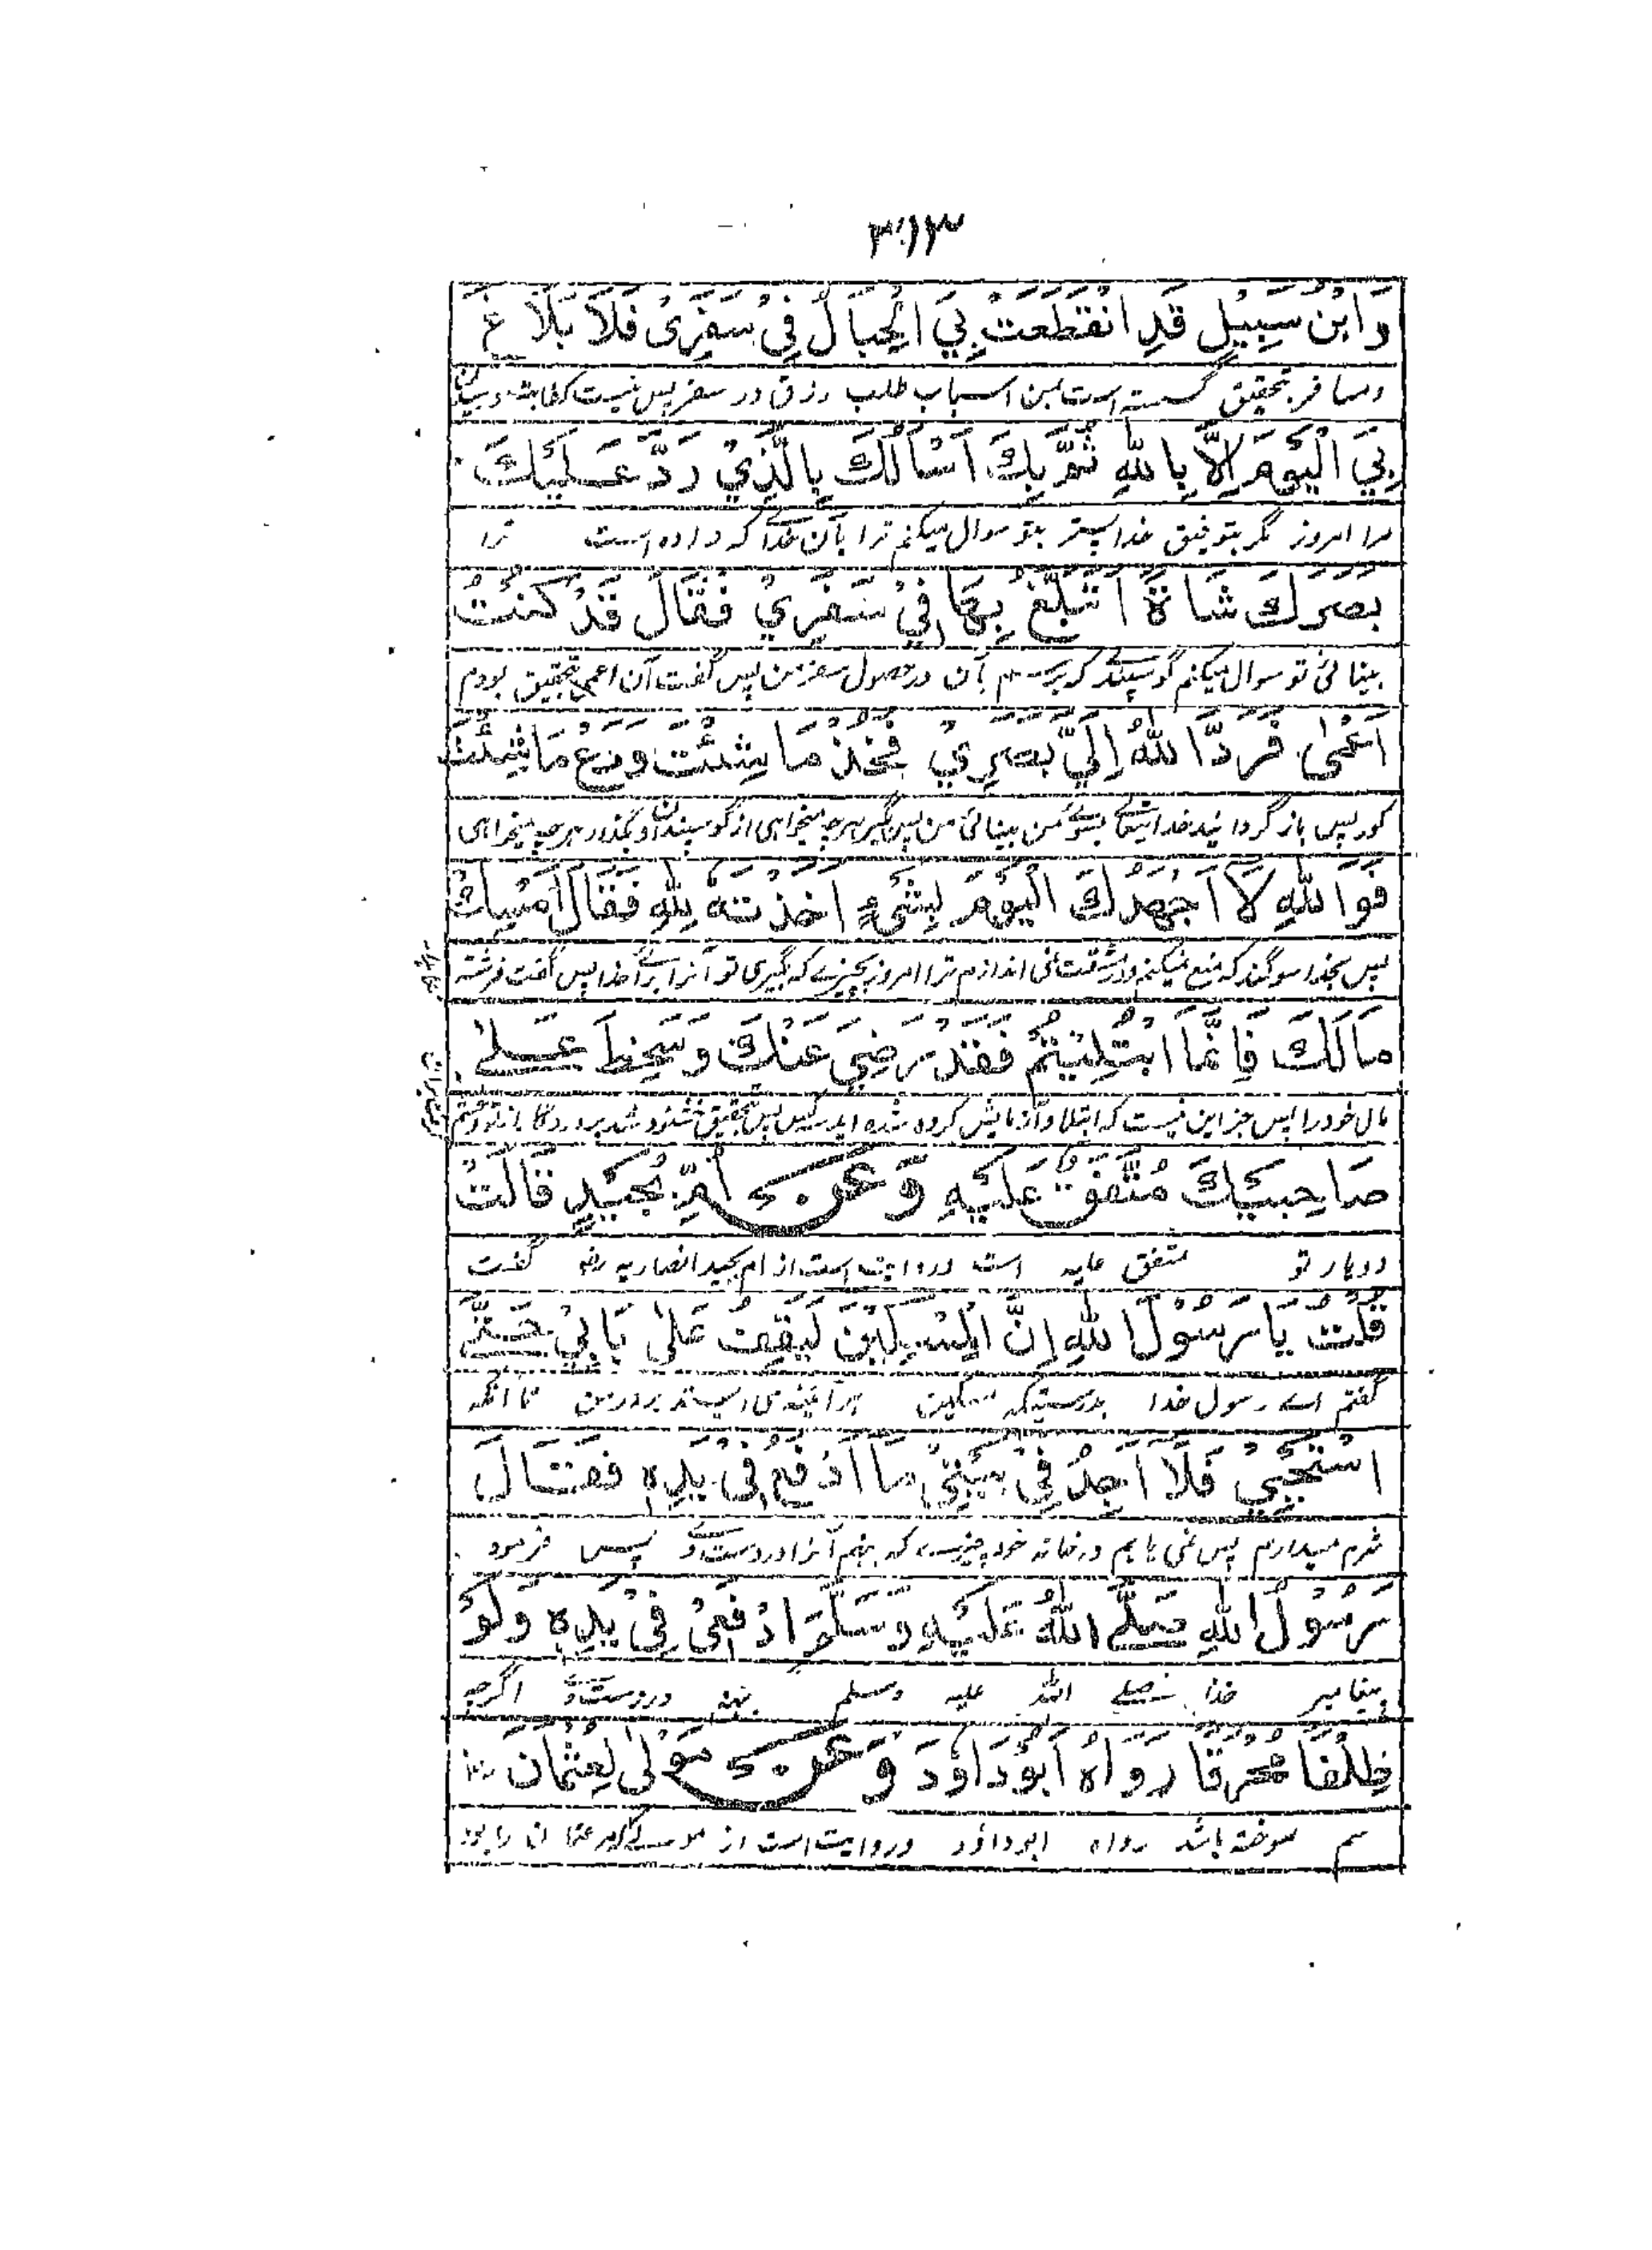 ٣١٣
وَابْنُ سَبِيْلٍ قَدِ انْقَطَعَتْ بِيَ الْحِبَالُ فِيْ سَفَرِيْ فَلَا بَلَاغَ
ومسافر بتحقیق گسسته است بمن اسباب طلب رزق در سفر پس نیست کفایت
بِيَ الْيَوْمَ اِلَّا بِاللهِ ثُمَّ بِكَ اَسْاَلُكَ بِالَّذِيْ رَدَّ عَلَيْكَ
مرا امروز مگر بتوفیق خدا پستر بتو سوال میکنم ترا بآن خدائے که داده است ترا
بَصَرَكَ شَاةً اَتَبَلَّغُ بِهَا فِيْ سَفَرِيْ فَقَالَ قَدْ كُنْتُ
بینائی تو سوال میکنم گوسپندے که برسم بآن در حصول سفر من پس گفت آن اعمی بتحقیق بودم
اَعْمٰى فَرَدَّ اللهُ اِلَيَّ بَصَرِيْ فَخُذْ مَا شِئْتَ وَدَعْ مَا شِئْتَ
کور پس باز گردانید خدایتعالے بسوئے من بینائی من پس بگیر هر چه میخواهی از گوسپندان و بگذار هر چه میخواهی
فَوَاللهِ لَا اَجْهَدُكَ الْيَوْمَ بِشَيْءٍ اَخَذْتَهٗ لِلّٰهِ فَقَالَ اَمْسِكْ
پس بخدا سوگند که منع نمیکنم و در مشقت نمی اندازم ترا امروز بچیزے که بگیری تو آنرا برائے خدا پس گفت فرشته
مَالَكَ فَاِنَّمَا ابْتُلِيْتُمْ فَقَدْ رَضِيَ عَنْكَ وَسَخِطَ عَلٰى
مال خود را پس جز این نیست که ابتلا و آزمایش کرده شده اید پس بتحقیق خشنود شد پروردگار از تو
صَاحِبَيْكَ مُتَّفَقٌ عَلَيْهِ وَعَنْ اُمِّ بُجَيْدٍ قَالَتْ
دو یار تو متفق علیه است و روایت است از ام بجید انصاریه رضه گفت
قُلْتُ يَا رَسُوْلَ اللهِ اِنَّ الْمِسْكِيْنَ لَيَقِفُ عَلٰى بَابِيْ حَتّٰى
گفتم اے رسول خدا بدرستیکه مسکین هر آئینه می ایستد بر در من تا آنکه
اَسْتَحْيِيْ فَلَا اَجِدُ فِيْ بَيْتِيْ مَا اَدْفَعُ فِيْ يَدِهٖ فَقَالَ
شرم میدارم پس نمی یابم در خانه خود چیزیے که بنهم آنرا در دست او پس فرمود
رَسُوْلُ اللهِ صَلَّى اللهُ عَلَيْهِ وَسَلَّمَ اِدْفَعِيْ فِيْ يَدِهٖ وَلَوْ
پیغامبر خدا صلے الله علیه وسلم بنه در دست او اگرچه
ظِلْفًا مُحْرَقًا رَوَاهُ اَبُوْ دَاوٗدَ وَعَنْ مَوْلًى لِعُثْمَانَ رض
سم سوخته باشد رواه ابوداؤد و روایت است از مولے که مر عثمان را بود